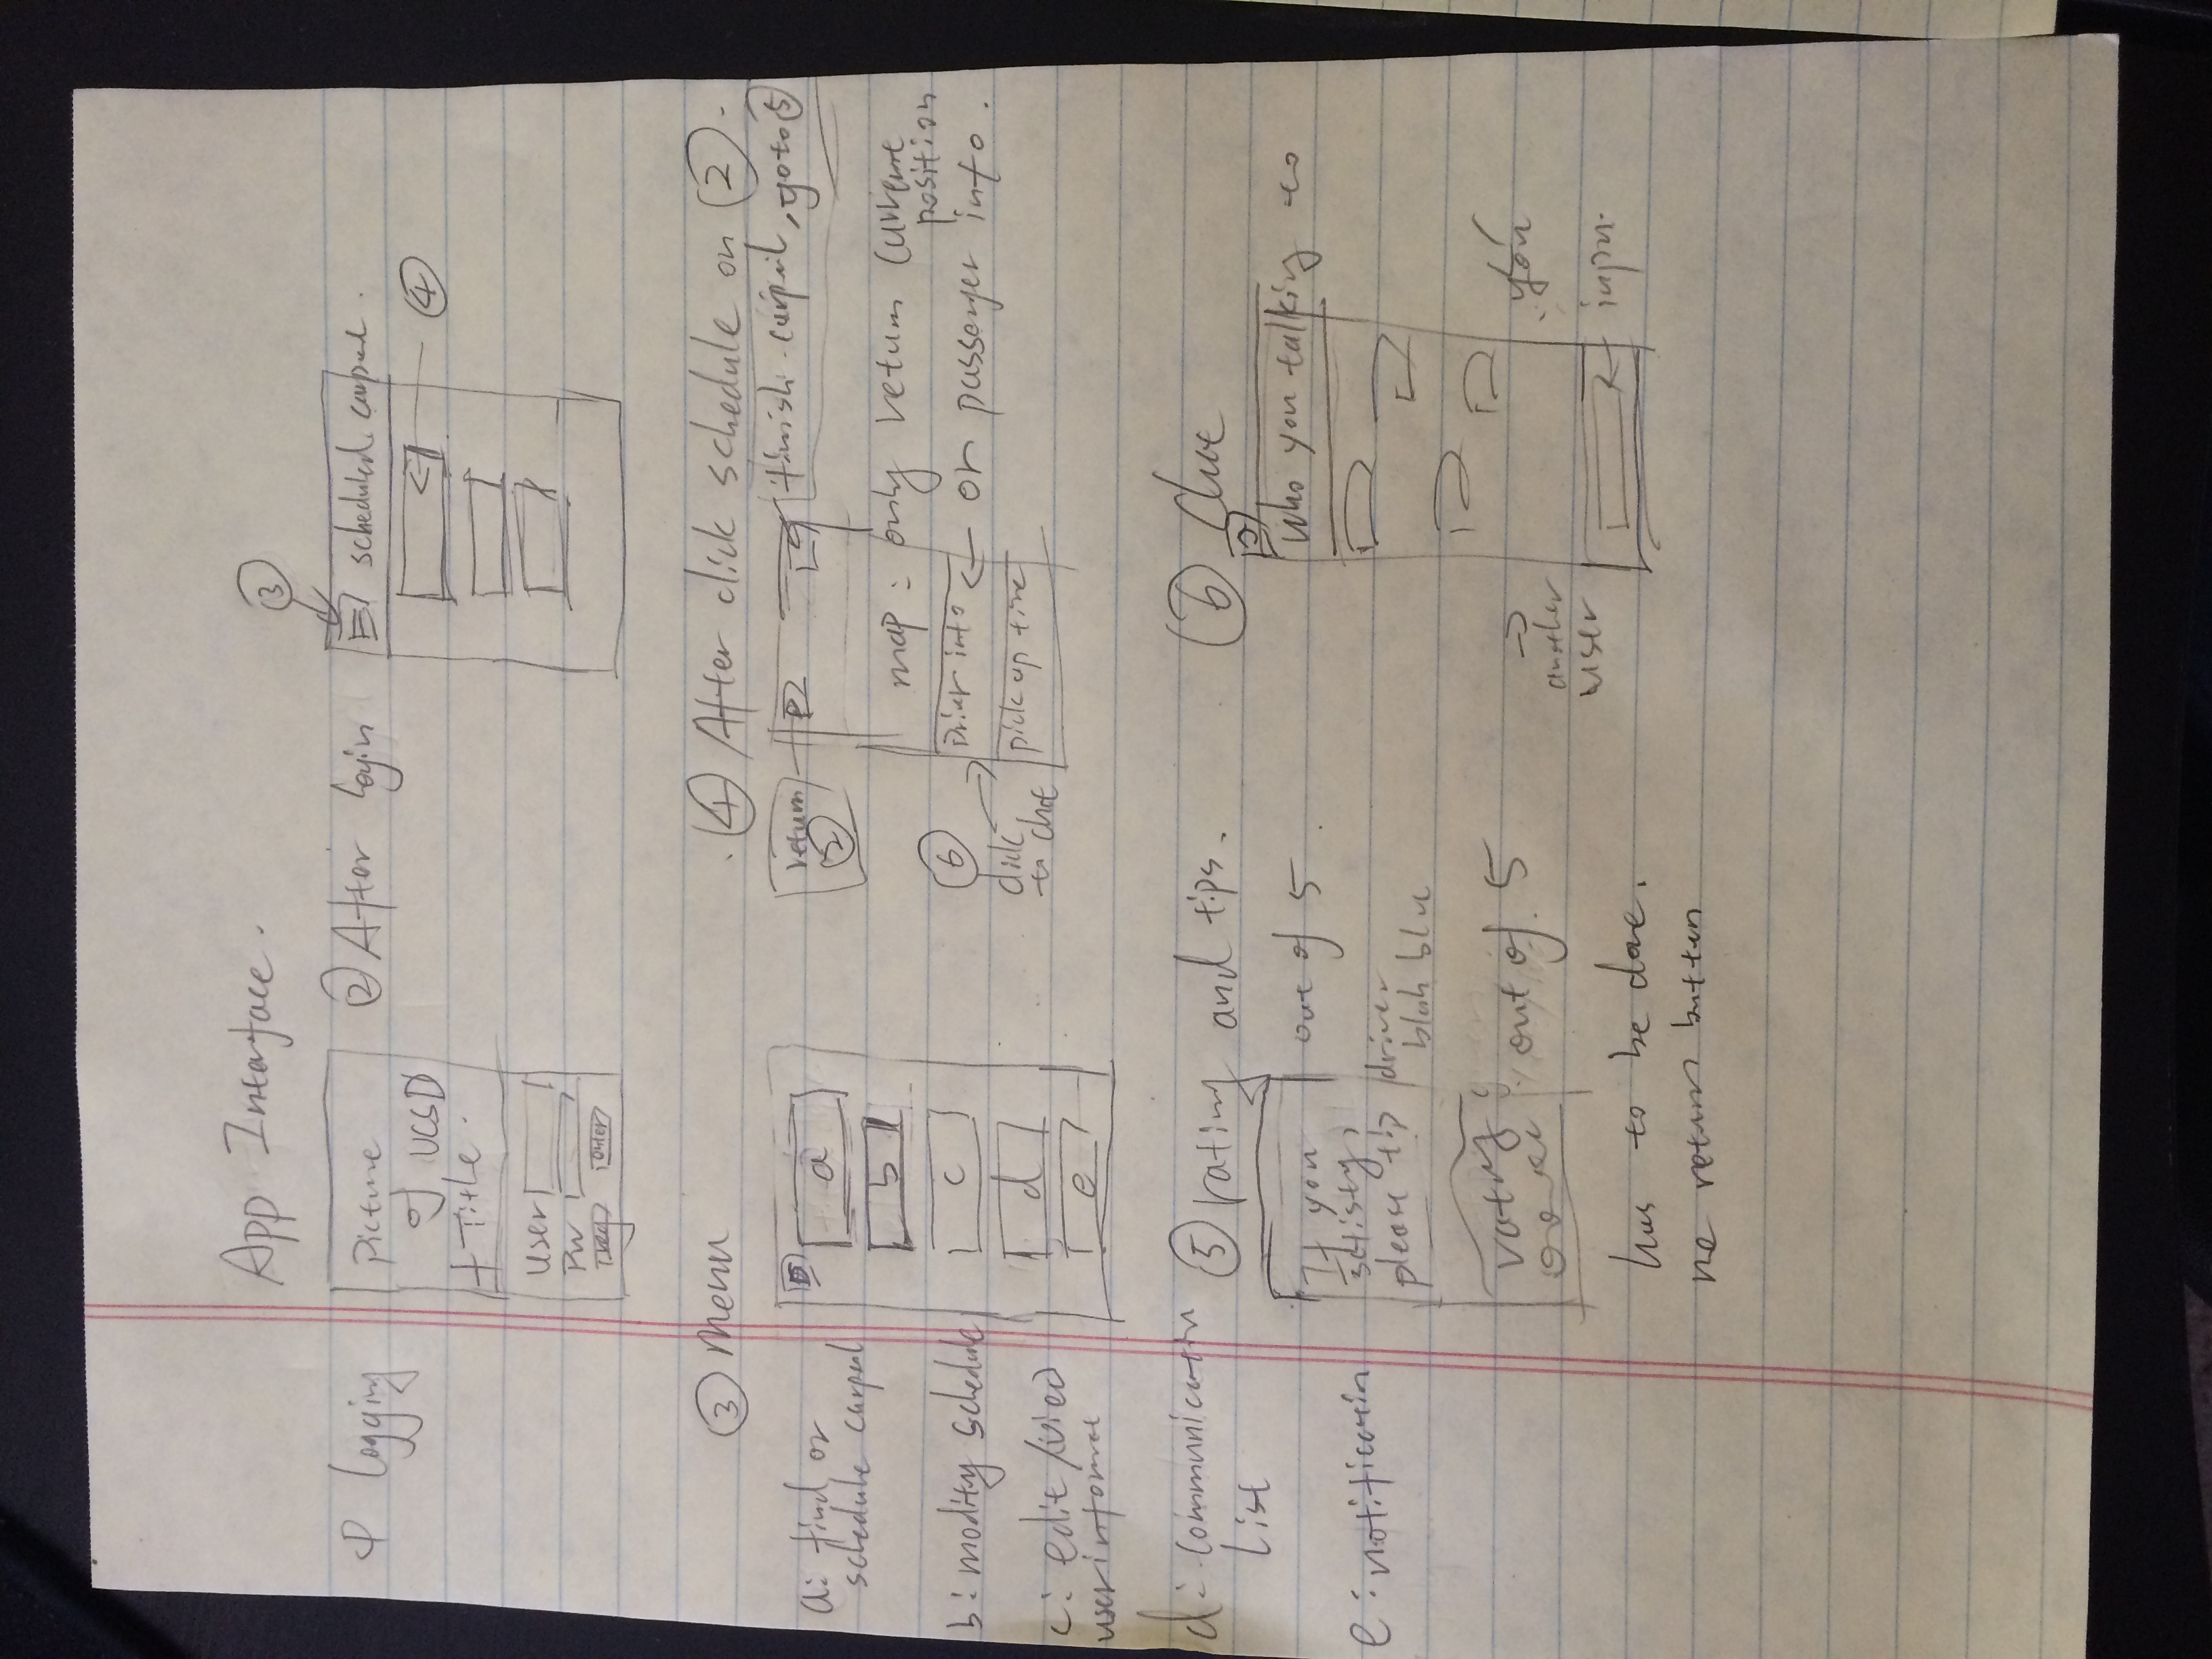 App Interface.
① logging
Picture
of UCSD
+ Title.
user
PW
reg
enter
② After login
③
scheduled carpool.
④
③ Menu
a: find or
schedule carpool
b: modify schedule
c: edit/view
user informat
d: communication
list
e: notification
a
b
c
d
e
④ After click schedule on ②.
return
②
finish carpool, go to ⑤
map: only return current
position
Driver info
or passenger info.
pick up time
⑥
click
to chat
⑤ rating and tips.
If you
satisfy,
please tip driver
blah blu
out of 5
rating:
out of 5
has to be done.
no return button
⑥ Chat
Who you talking to
another
user
you
input